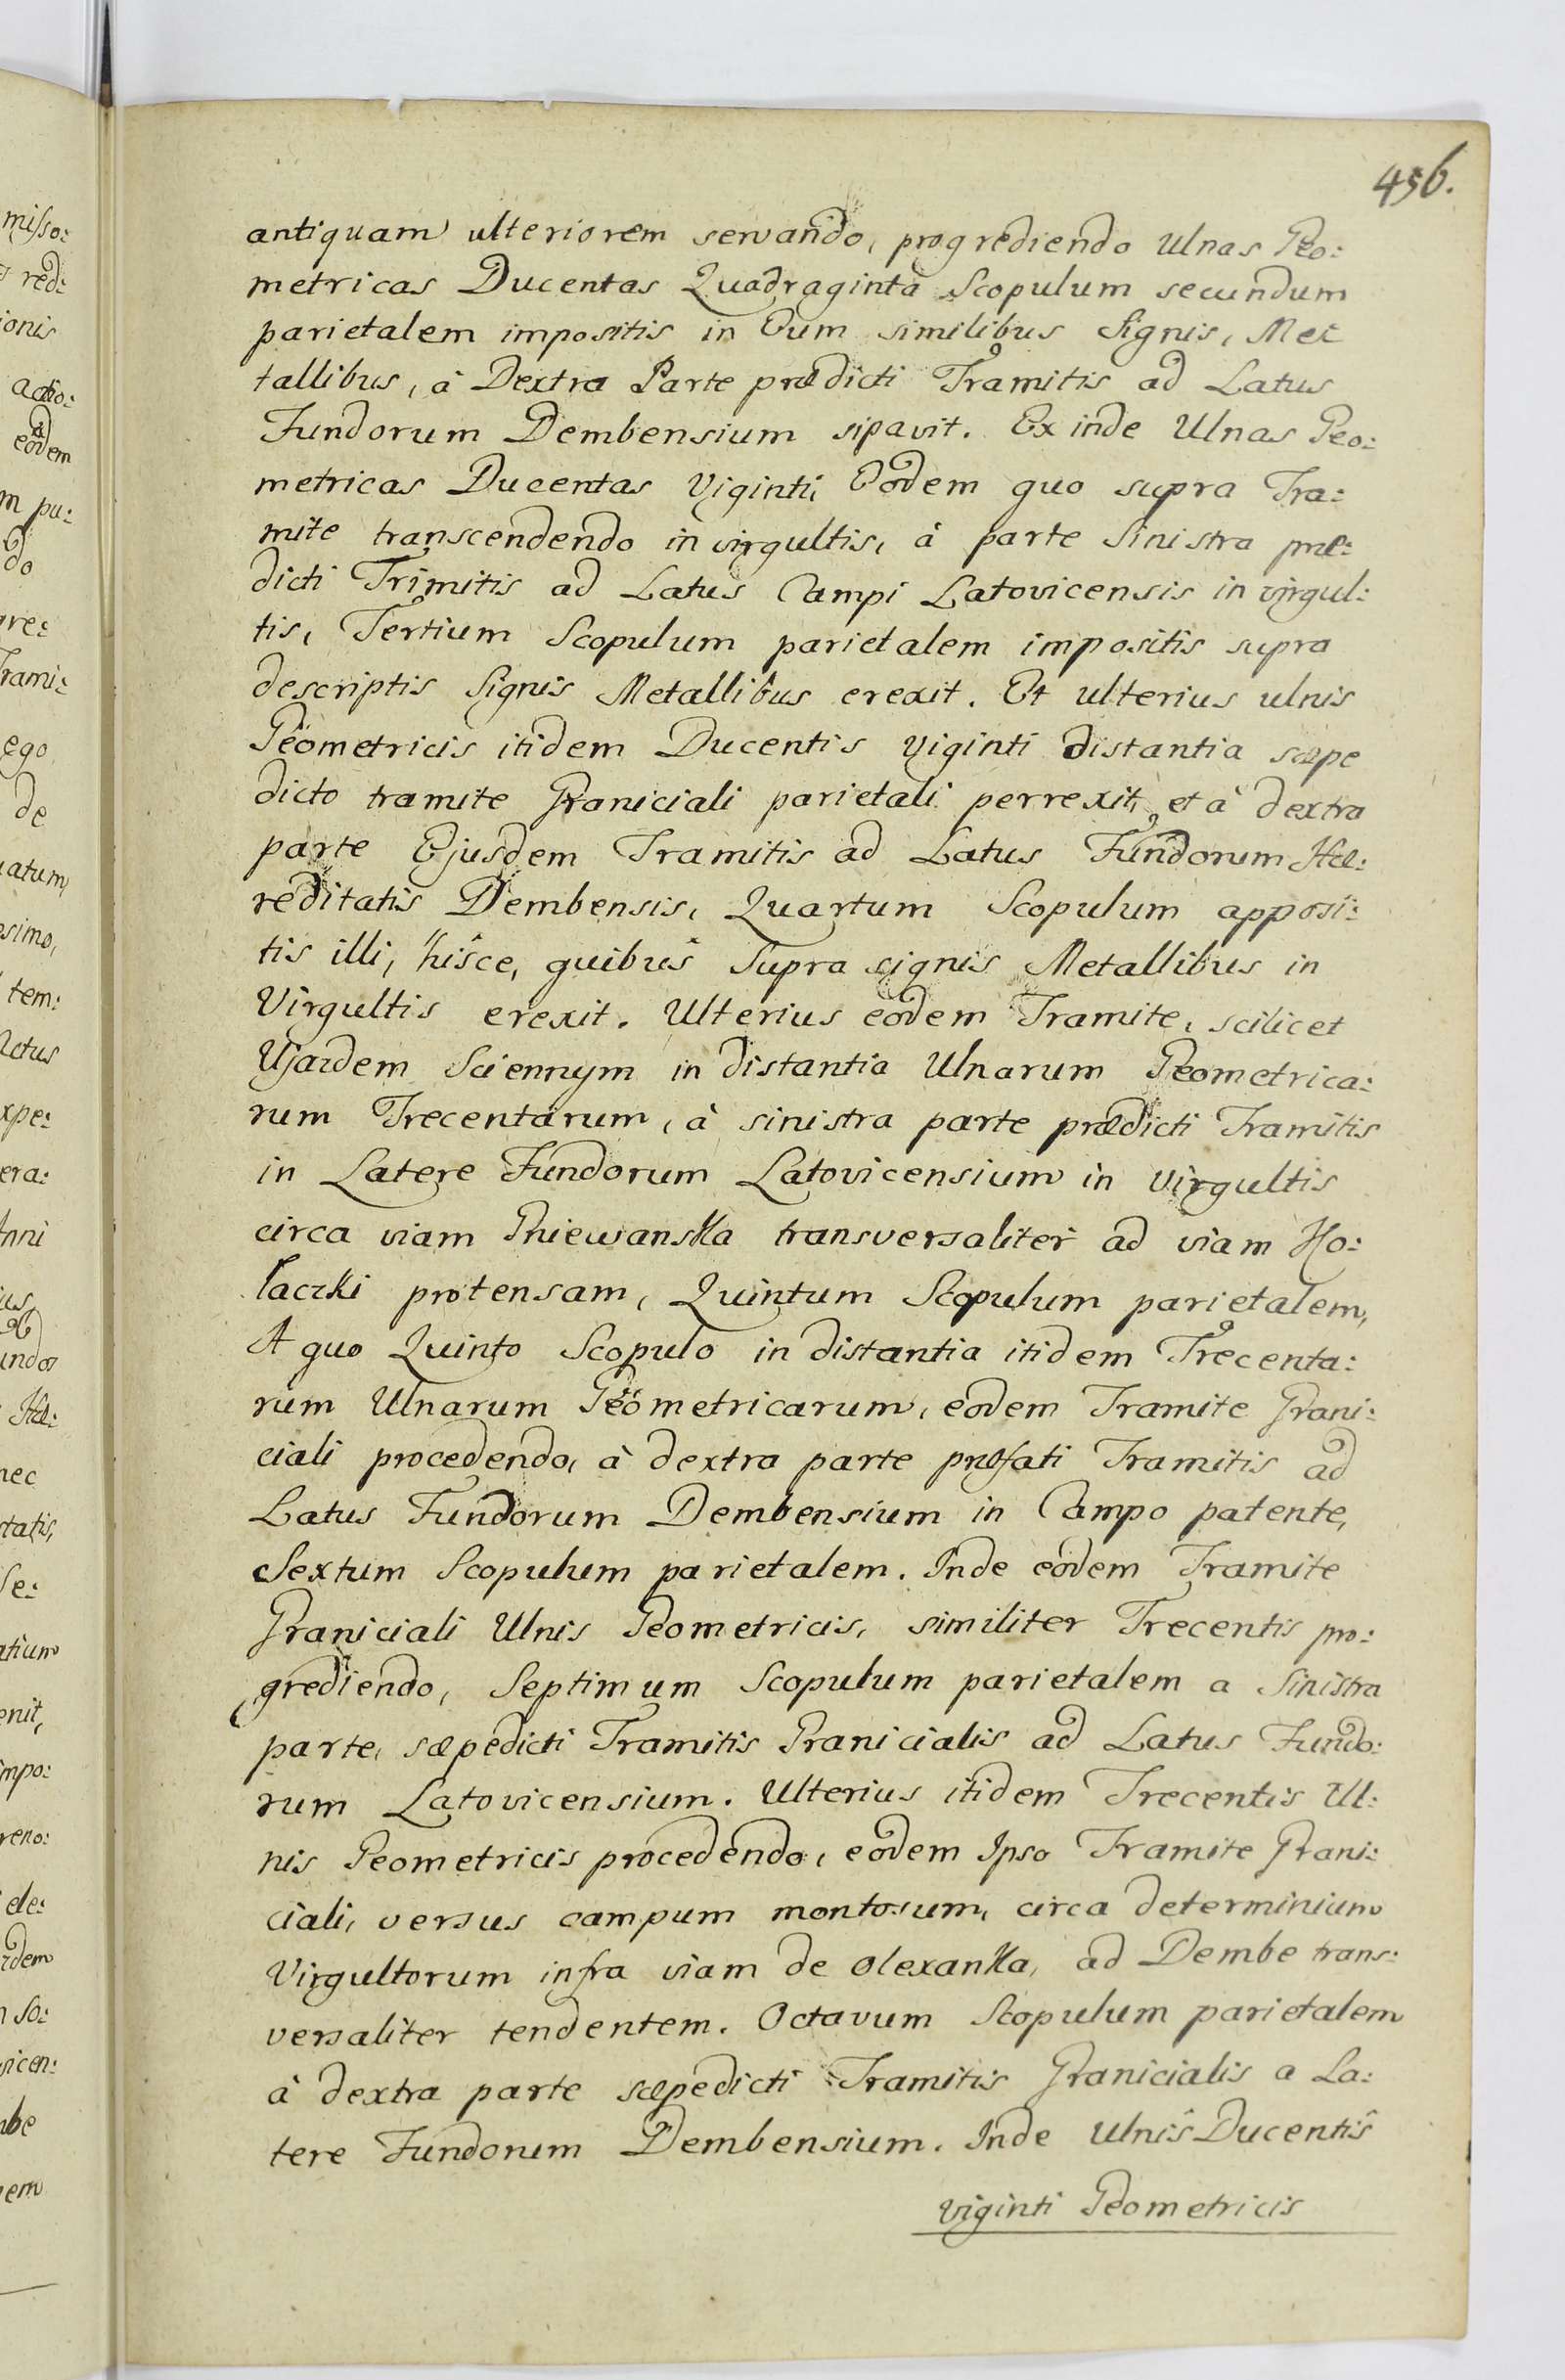 456.
antiquam ulteriorem servando, progrediendo Ulnas Geo:
metricas Ducentas Quadraginta Scopulum secundum
parietalem impositis in Eum similibus Signis, Met
tallibus, à Dextra Parte prædicti Tramitis ad Latus
Fundorum Dembensium sipavit. Ex inde Ulnas Geo:
metricas Ducentas Viginti, Eodem quo supra Tra:
mite transcendendo in virgultis, à parte Sinistra præ:
dicti Trimitis ad Latus Campi Latovicensis in virgul:
tis, Tertium Scopulum parietalem impositis supra
descriptis Signis Metallibus erexit. Et ulterius ulnis
Geometricis itidem Ducentis Viginti distantia sæpe
dicto tramite Graniciali parietali perrexit, et à dextra
parte Ejusdem Tramitis ad Latus Fundorum Hæ:
reditatis Dembensis, Quartum Scopulum apposi:
tis illi, hisce, quibus Supra signis Metallibus in
Virgultis erexit. Ulterius eodem Tramite, scilicet
Ujazdem Sciennym in distantia Ulnarum Geometrica:
rum Trecentarum, à sinistra parte prædicti Tramitis
in Latere Fundorum Latovicensium in Virgultis
circa viam Gniewanska transversaliter ad viam Ho:
laczki protensam, Quintum Scopulum parietalem,
A quo Quinto Scopulo in distantia itidem Trecenta:
rum Ulnarum Geometricarum, eodem Tramite Grani:
ciali procedendo, à dextra parte præfati Tramitis ad
Latus Fundorum Dembensium in Campo patente,
Sextum Scopulum parietalem. Inde eodem Tramite
Graniciali Ulnis Geometricis, similiter Trecentis pro:
grediendo, Septimum Scopulum parietalem a Sinistra
parte, sæpedicti Tramitis Granicialis ad Latus Fundo:
rum Latovicensium. Ulterius itidem Trecentis Ul:
nis Geometricis procedendo, eodem Ipso Tramite Grani:
ciali, versus campum montosum, circa determinium
Virgultorum infra viam de Olexanka, ad Dembe trans:
versaliter tendentem. Octavum Scopulum parietalem
à dextra parte sæpedicti Tramitis Granicialis a La:
tere Fundorum Dembensium. Inde Ulnis Ducentis
viginti Geometricis